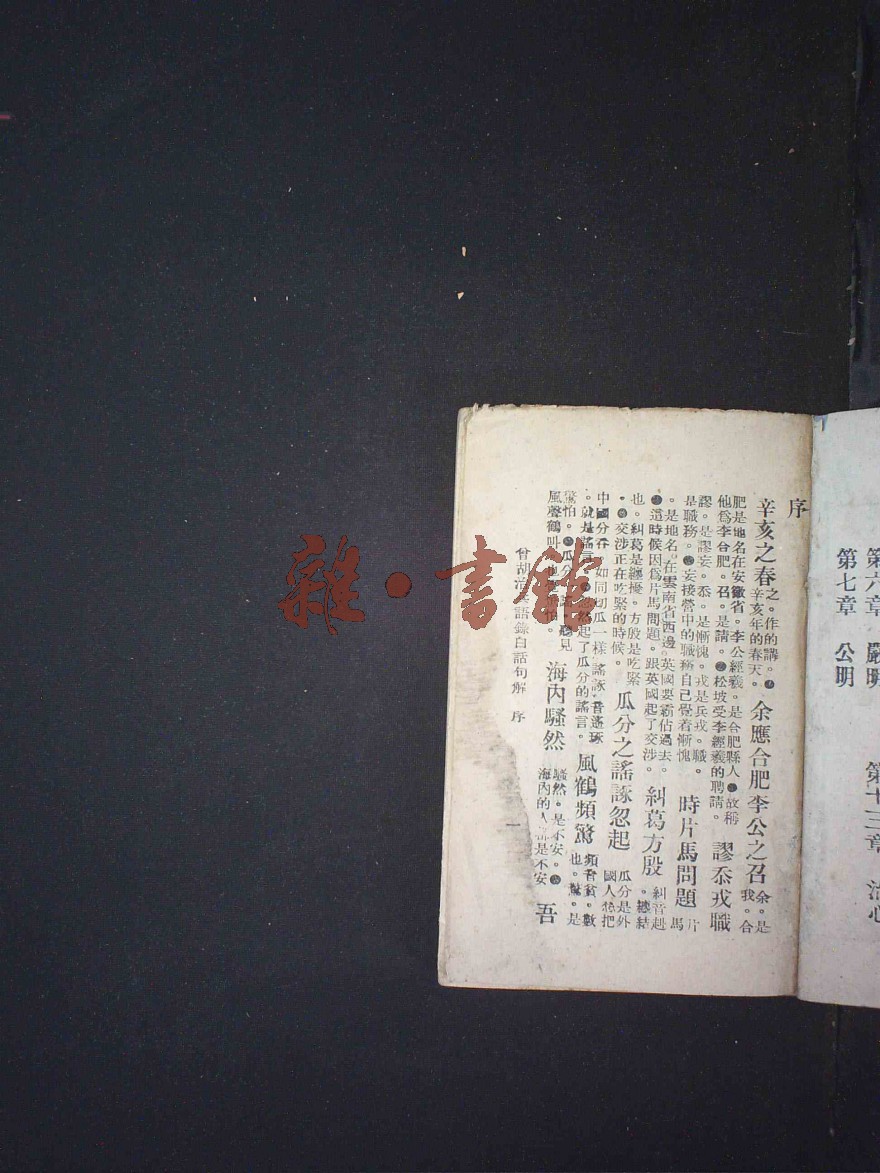 第六章　嚴明
第七章　公明
第十三章　治心
序
辛亥之春 之。作的講。●辛亥年的春天。 余應合肥李公之召 余。是我。合
肥是地名在安徽省。李公經羲。是合肥縣人●故稱他爲李合肥。召。是請。●松坡受李經羲的聘請。 謬忝戎職
謬。是謬妄。忝。是慚愧。戎是兵戎。職。是職務。●妄接營中的職務自己覺着慚愧 時片馬問題 片馬
。是地名。在雲南省西邊。英國要霸佔過去。●這時候因爲片馬問題。跟英國起了交涉。 糾葛方殷 糾音赳。纏結
也。糾葛是纏擾。方殷是吃緊。●交涉正在吃緊的時候。 瓜分之謠諑忽起 瓜分是外國人想把
中國分吞。如同切瓜一樣 謠諑。音遙琢。就是謠言。 起了瓜分的謠言。 風鶴頻驚 頻音貧。數也。驚。是
驚怕。●瓜分 聽見風聲鶴叫 海內騷然 騷然。是不安。●海內的人都是不安 吾
曾胡治兵語錄白話句解　序
一
雜·書館